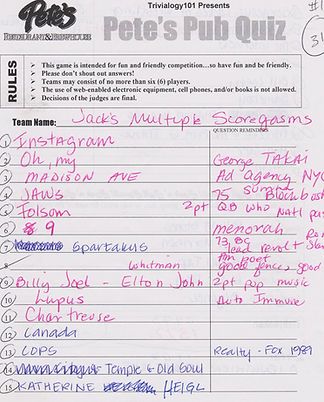 Trivialogy101 Presents
Pete's
RESTAURANT & BREWHOUSE
Pete's Pub Quiz
#1
31
RULES
This game is intended for fun and friendly competition…so have fun and be friendly.
Please don't shout out answers!
Teams may consist of no more than six (6) players.
The use of web-enabled electronic equipment, cell phones, and/or books is not allowed.
Decisions of the judges are final.
Team Name: Jack's Multiple Scoregasms
QUESTION REMINDERS
1 Instagram
2 Oh, my George TAKAI
3 MADISON AVE Ad agency NYC
4 JAWS 75 Blockbust
5 Folsom 2pt QB who
6 9 menorah
7 Spartakus 73 BC lead revolt
8 Whitman Am poet good fences good
9 Billy Joel - Elton John 2pt pop music
10 Lupus Auto Immune
11 Chartreuse
12 Canada
13 COPS Realty - Fox 1989
14 Temple & Old Soul
15 KATHERINE HEIGL